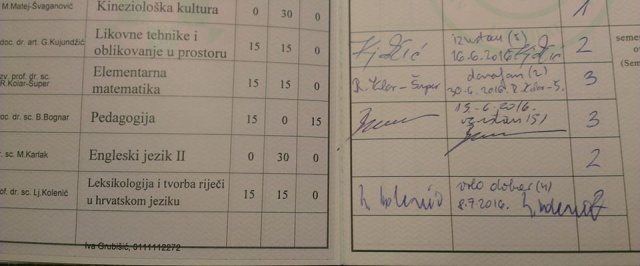 M.Matej-Švaganović Kineziološka kultura 0 30 0 1
doc. dr. art. G.Kujundžić Likovne tehnike i oblikovanje u prostoru 15 15 0 izvrstan (5) 16.6.2016. 2
prof. dr. sc. R.Kolar-Šuper Elementarna matematika 15 15 0 R. Kolar-Šuper dovoljan (2) 30.6.2016. R. Kolar-Š. 3
doc. dr. sc. B.Bognar Pedagogija 15 0 15 15.6.2016. izvrstan (5) 3
sc. M.Karlak Engleski jezik II 0 30 0 2
of. dr. sc. Lj.Kolenić Leksikologija i tvorba riječi u hrvatskom jeziku 15 15 0 Lj Kolenić vrlo dobar (4) 8.7.2016. Lj Kolenić 2
Iva Grubišić, 0111112272